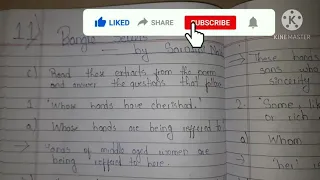 LIKED SHARE SUBSCRIBE
KINEMASTER
11)
Bangle Sellers
by Saroj
c) Read these extracts from the poem
and answer the questions that follow
1 "Whose hands have cherished."
a) Whose hands are being referred to
→ hands of middle aged women are
being referred to here.
These hands
sons who
sincerity
2. "Some
or rich
a) Whom
→ 'her'